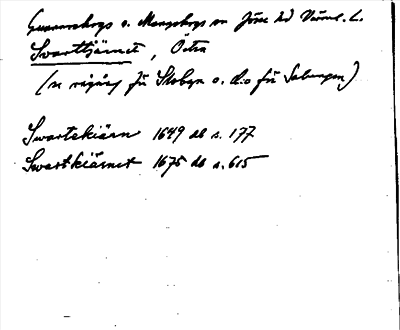 Gunnarskogs o. Mangskogs sn Jösse hd Värml. l.
Svarttjärnet, Östra
(se vidare för Skobyn o. d:o för Salungen)
Swartekiärn 1649 db s. 177
Swartkiärnet 1675 db s. 615